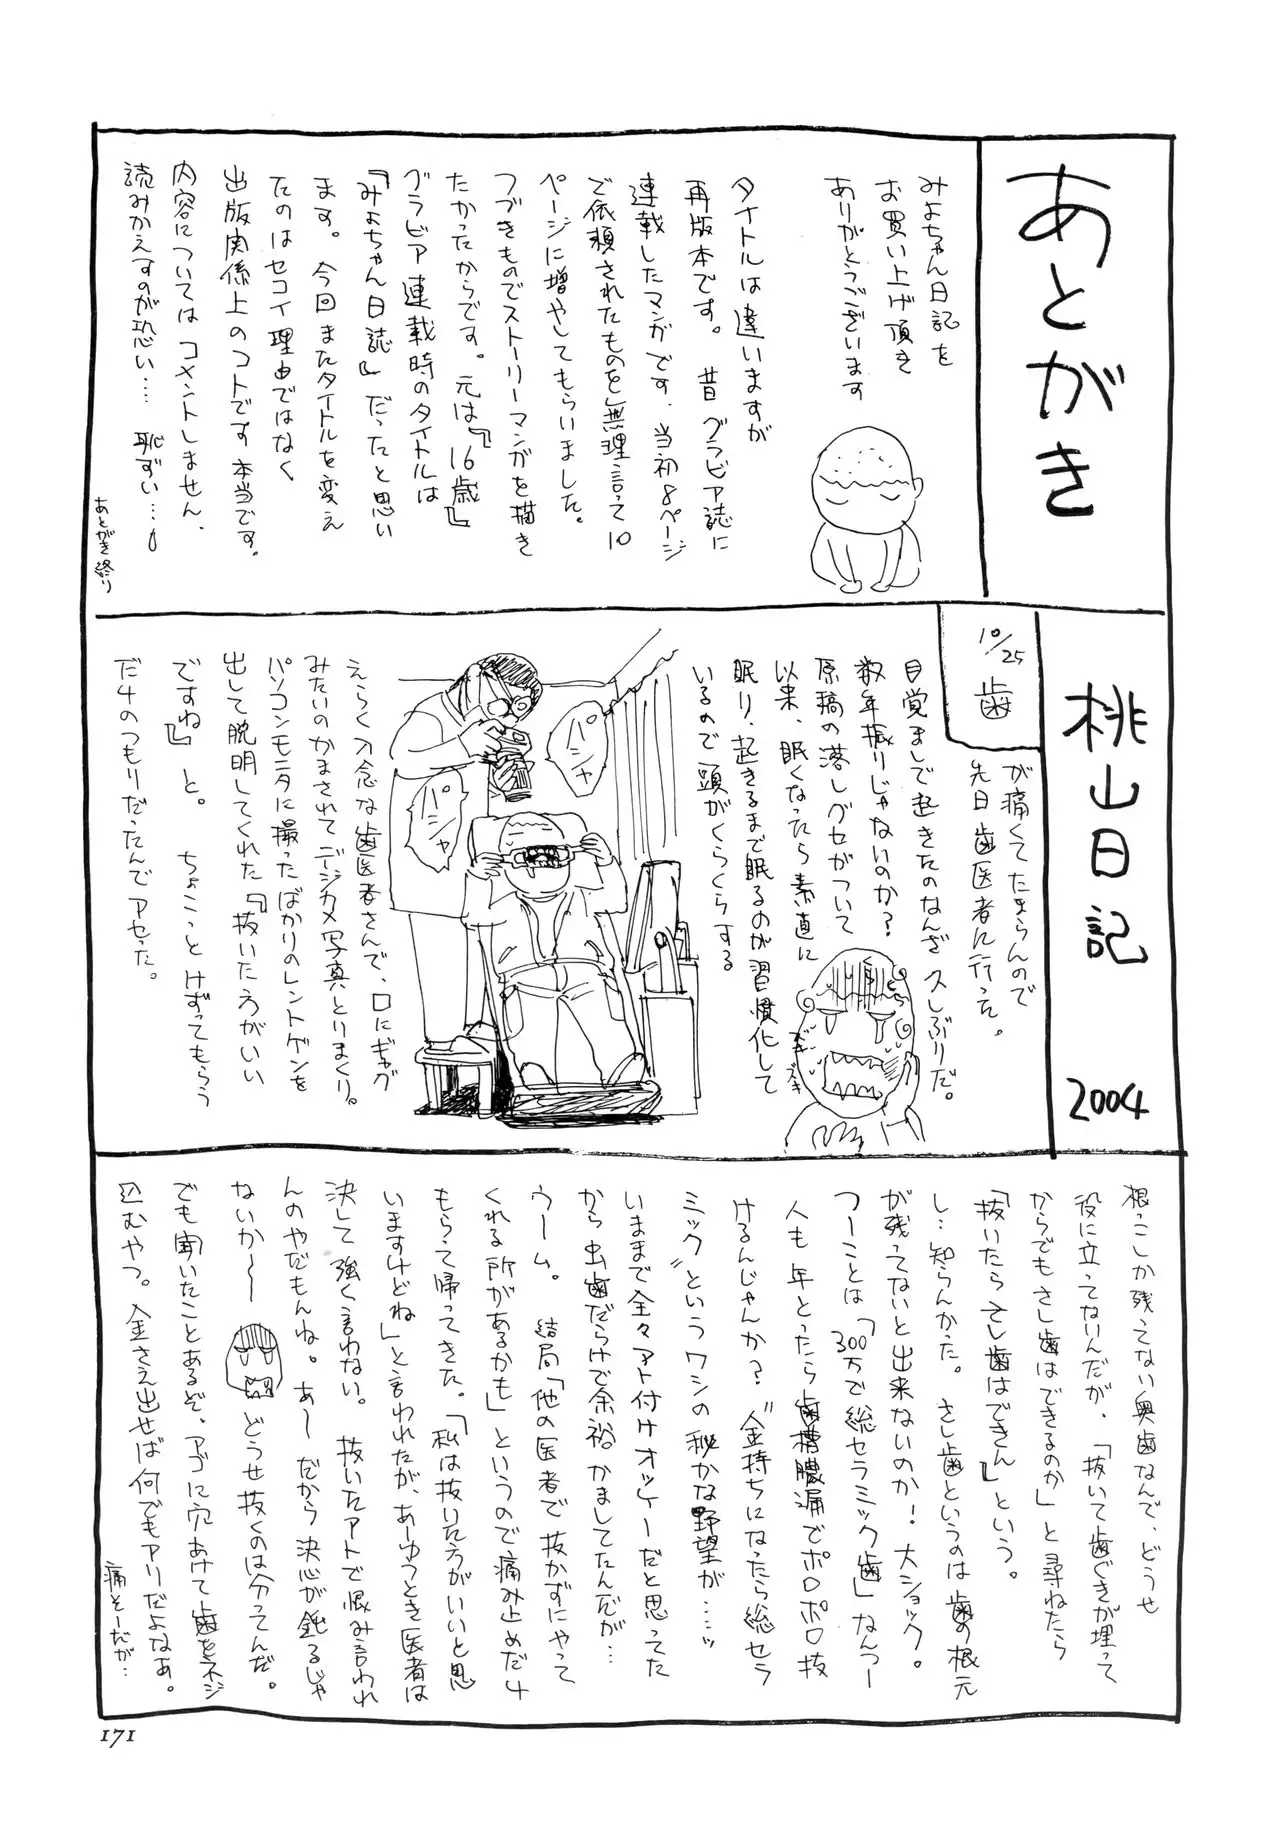 あとがき
みよちゃん日記を
お買い上げ頂き
ありがとうございます
タイトルは違いますが
再版本です。昔グラビア誌に
連載したマンガです、当初8ページ
で依頼されたものを無理言って10
ページに増やしてもらいました。
つづきものでストーリーマンガを描き
たかったからです。元は『16歳』
グラビア連載時のタイトルは
『みよちゃん日誌』だったと思い
ます。今回またタイトルを変え
たのはセコイ理由ではなく
出版関係上のコトです本当です。
内容についてはコメントしません、
読みかえすのが恐い…恥ずい…
あとがき終り
桃山日記 2004
10/25
歯
が痛くてたまらんので
先日歯医者に行った。
目覚ましで起きたのなんざ久しぶりだ。
数年振りじゃないのか?
原稿の落しグセがついて
以来、眠くなったら素直に
眠り、起きるまで眠るのが習慣化して
いるので頭がくらくらする
ズキズキ
パシャ
パシャ
えらく入念な歯医者さんで、口にギャグ
みたいのかまされてデジカメ写真とりまくり。
パソコンモニタに撮ったばかりのレントゲンを
出して説明してくれた『抜いた方がいい
ですね』と。ちょこっとけずってもらう
だ4のつもりだったんでアセった。
根っこしか残ってない奥歯なんで、どうせ
役に立ってないんだが、「抜いて歯ぐきが埋って
からでもさし歯はできるのか」と尋ねたら
「抜いたらさし歯はできん」という。
し…知らんかった。さし歯というのは歯の根元
が残ってないと出来ないのか!大ショック。
つーことは「300万で総セラミック歯」なんつー
人も年とったら歯槽膿漏でポロポロ抜
けるんじゃんか?“金持ちになったら総セラ
ミック”というワシの秘かな野望が……ッ
いままで全々アト付けオッケーだと思ってた
から虫歯だらけで余裕かましてたんだが…
ウーム。結局「他の医者で抜かずにやって
くれる所があるかも」というので痛み止めだ4
もらって帰ってきた。「私は抜いた方がいいと思
いますけどね」と言われたが、あーゆうとき医者は
決して強く言わない。抜いたアトで恨み言われ
んのやだもんね。あーだから決心が鈍るじゃ
ないか〜〜どうせ抜くのは分ってんだ。
でも聞いたことあるぞ、アゴに穴あけて歯をネジ
込むやつ。金さえ出せば何でもアリだよなあ。
痛そーだが…
171